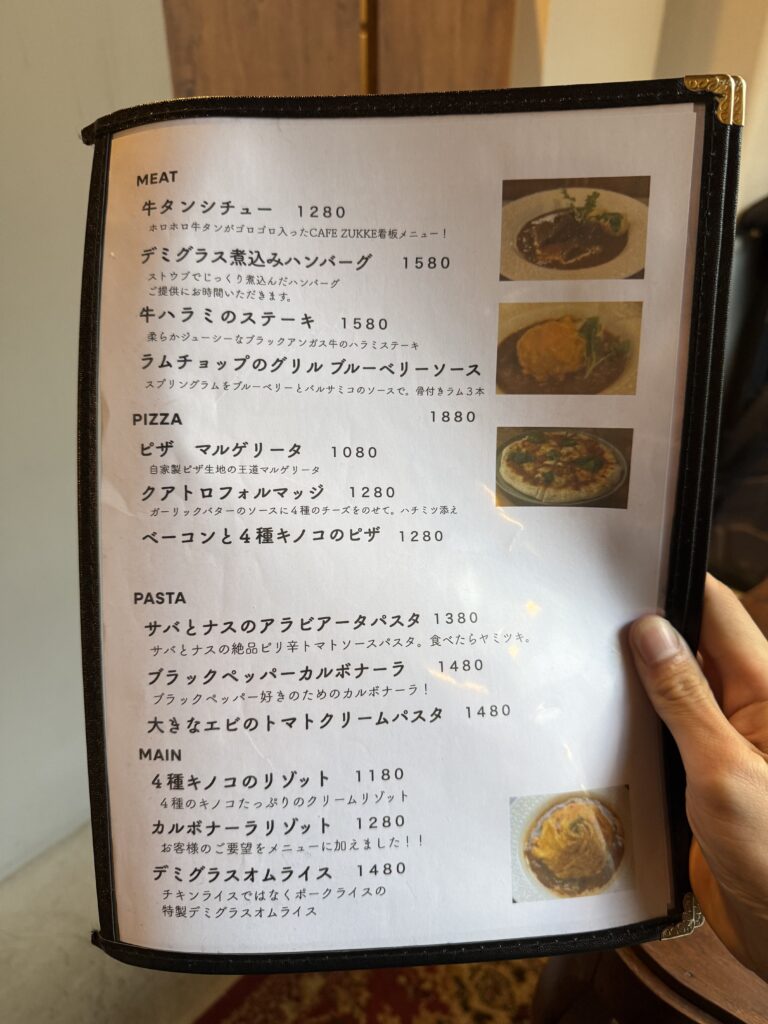 MEAT
牛タンシチュー 1280
ホロホロ牛タンがゴロゴロ入ったCAFE ZUKKE看板メニュー！
デミグラス煮込みハンバーグ 1580
ストウブでじっくり煮込んだハンバーグ
ご提供にお時間いただきます。
牛ハラミのステーキ 1580
柔らかジューシーなブラックアンガス牛のハラミステーキ
ラムチョップのグリル ブルーベリーソース
スプリングラムをブルーベリーとバルサミコのソースで。骨付きラム３本
1880
PIZZA
ピザ マルゲリータ 1080
自家製ピザ生地の王道マルゲリータ
クアトロフォルマッジ 1280
ガーリックバターのソースに４種のチーズをのせて。ハチミツ添え
ベーコンと４種キノコのピザ 1280
PASTA
サバとナスのアラビアータパスタ 1380
サバとナスの絶品ピリ辛トマトソースパスタ。食べたらヤミツキ。
ブラックペッパーカルボナーラ 1480
ブラックペッパー好きのためのカルボナーラ！
大きなエビのトマトクリームパスタ 1480
MAIN
４種キノコのリゾット 1180
４種のキノコたっぷりのクリームリゾット
カルボナーラリゾット 1280
お客様のご要望をメニューに加えました！！
デミグラスオムライス 1480
チキンライスではなくポークライスの
特製デミグラスオムライス